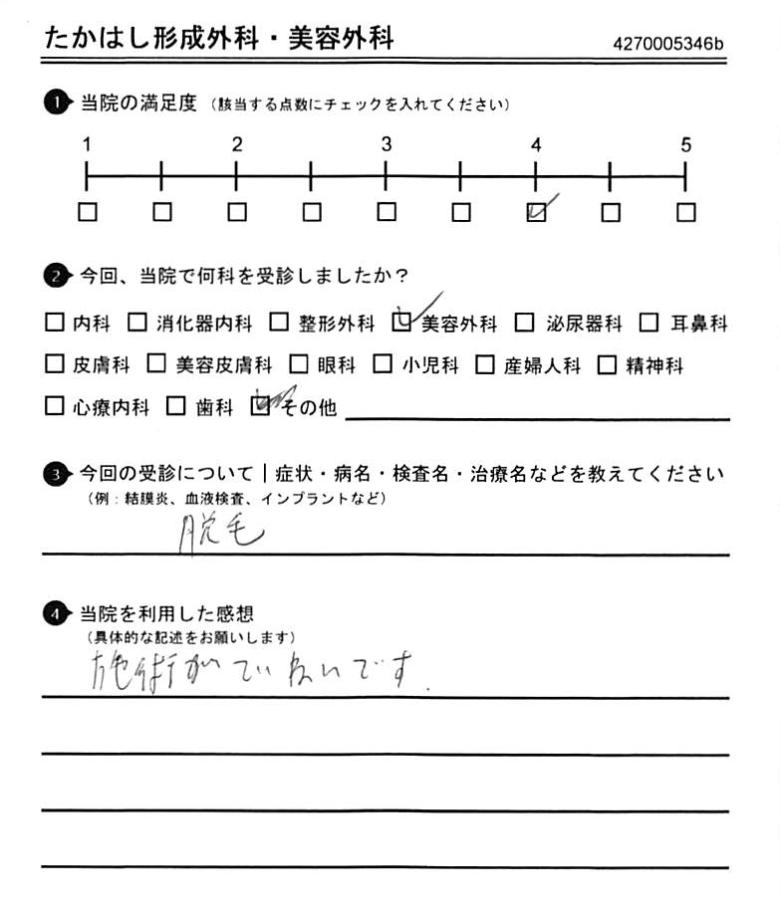 たかはし形成外科・美容外科 4270005346b
1 当院の満足度 (該当する点数にチェックを入れてください)
1 2 3 4 5
2 今回、当院で何科を受診しましたか?
内科 消化器内科 整形外科 美容外科 泌尿器科 耳鼻科
皮膚科 美容皮膚科 眼科 小児科 産婦人科 精神科
心療内科 歯科 その他
3 今回の受診について|症状・病名・検査名・治療名などを教えてください
(例:結膜炎、血液検査、インプラントなど)
脱毛
4 当院を利用した感想
(具体的な記述をお願いします)
施術がていねいです.